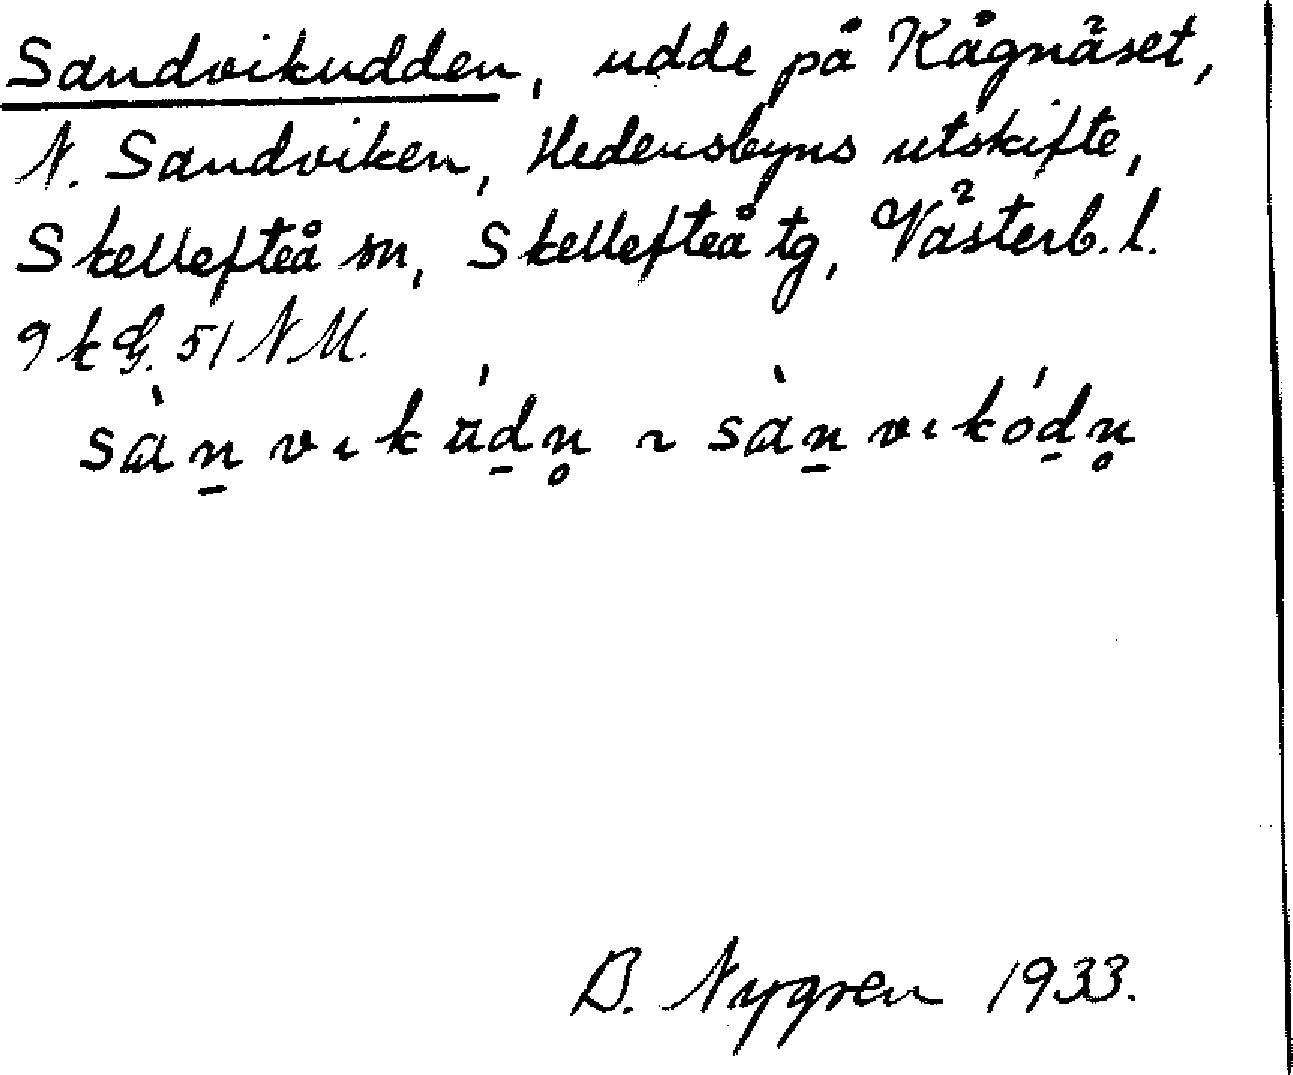 Sandvikudden, udde på Kågnäset,
N. Sandviken, Hedensbyns utskifte,
Skellefteå sn, Skellefteå tg, Västerb. l.
9 k G. 51 NM.
sàn̲ vıkúd̲n̥ ~ sàn̲ vıkód̲n̥
B. Nygren 1933.